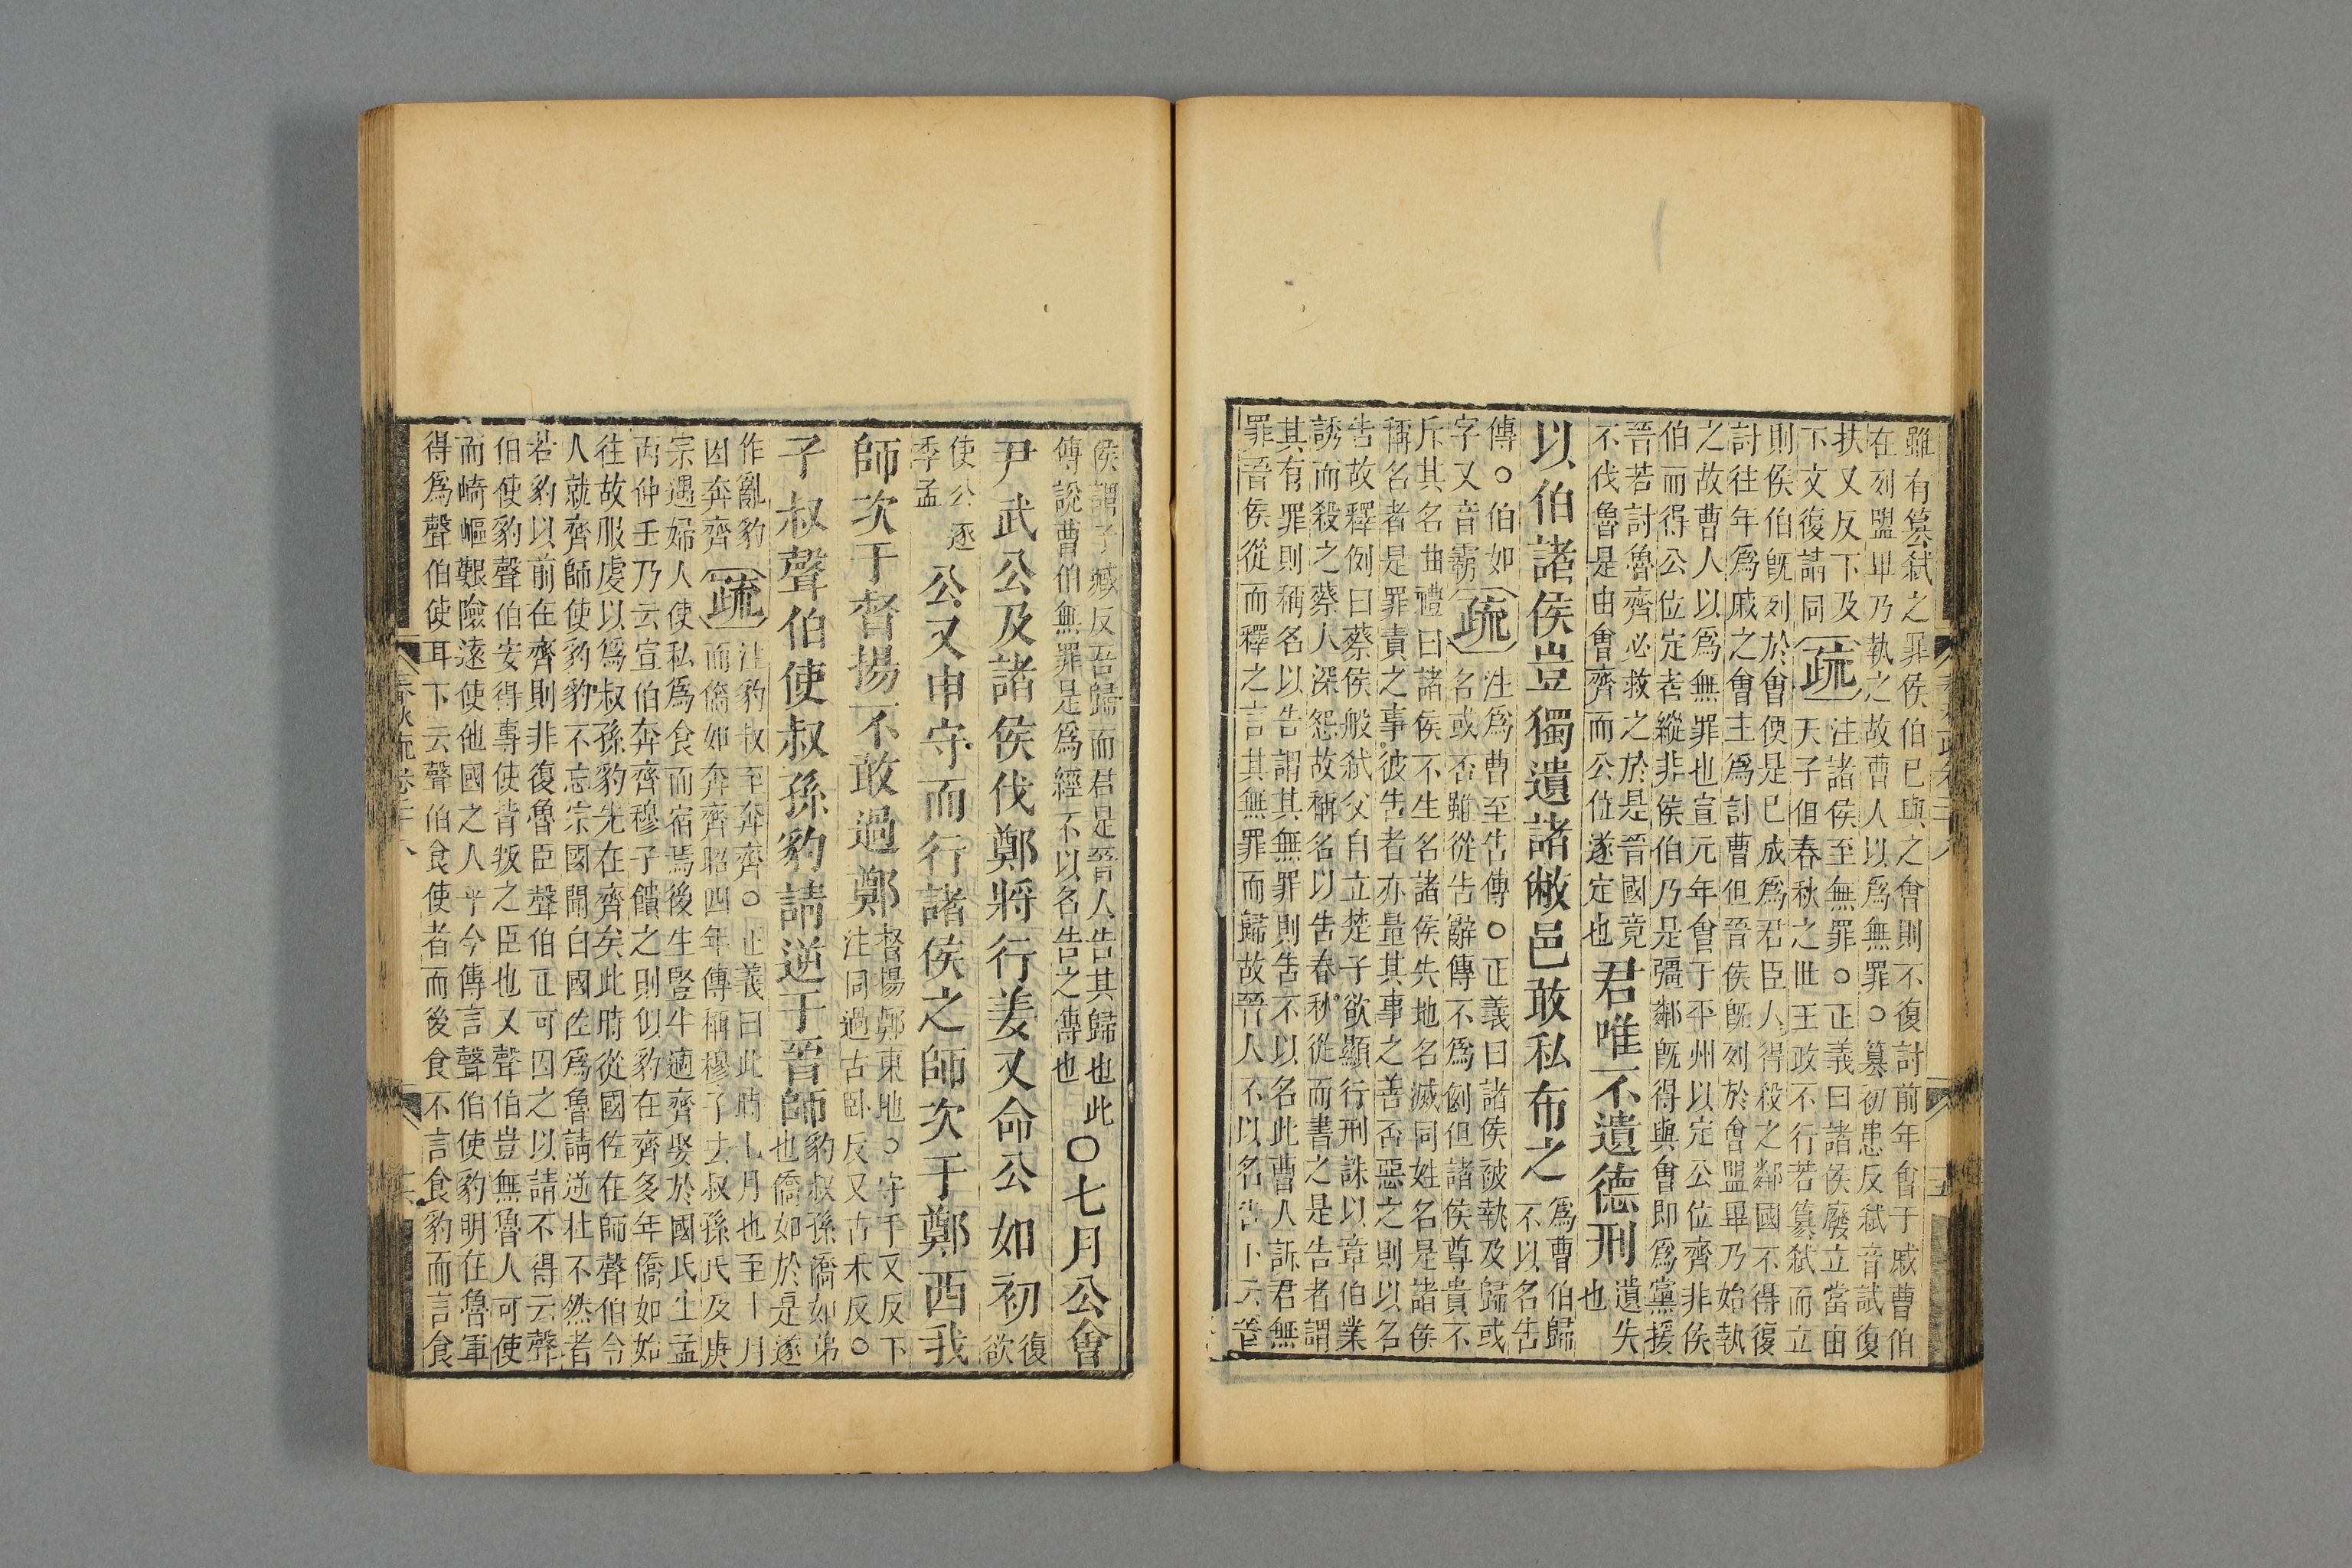 雖有篡弒之罪侯伯已與之會則不復討前年會于戚曹伯
在列盟畢乃執之故曹人以爲無罪○篡初患反弒音試復
扶又反下及
下文復請同
疏
注諸侯至無罪○正義曰諸侯廢立當由
天子但春秋之世王政不行若篡弒而立
則侯伯旣列於會便是已成爲君臣人得殺之鄰國不得復
討往年爲戚之會主爲討曹但晉侯旣列於會盟畢乃始執
之故曹人以爲無罪也宣元年會于平州以定公位齊非侯
伯而得公位定者縱非侯伯乃是彊鄰旣得與會即爲黨援
晉若討魯齊必救之於是晉國竟
不伐魯是由會齊而公位遂定也
君唯不遺德刑
遺失
也
以伯諸侯豈獨遺諸敝邑敢私布之
爲曹伯歸
不以名告
傳○伯如
字又音霸
疏
注爲曹至告傳○正義曰諸侯被執及歸或
名或否雖從告辭傳不爲例但諸侯尊貴不
斥其名曲禮曰諸侯不生名諸侯失地名滅同姓名是諸侯
稱名者是罪責之事彼告者亦量其事之善否惡之則以名
告故釋例曰蔡侯般弒父自立楚子欲顯行刑誅以章伯業
誘而殺之蔡人深怨故稱名以告春秋從而書之是告者謂
其有罪則稱名以告謂其無罪則告不以名此曹人訴君無
罪晉侯從而釋之言其無罪而歸故晉人不以名告下云晉
侯謂子臧反吾歸而君是晉人告其歸也此
傳說曹伯無罪是爲經不以名告之傳也
○七月公會
尹武公及諸侯伐鄭將行姜又命公如初
復
欲
使公逐
季孟
公又申守而行諸侯之師次于鄭西我
師次于督揚不敢過鄭
督揚鄭東地○守手又反下
注同過古臥反又古禾反○
子叔聲伯使叔孫豹請逆于晉師
豹叔孫僑如弟
也僑如於是遂
作亂豹
因奔齊
疏
注豹叔至奔齊○正義曰此時七月也至十月
而僑如奔齊昭四年傳稱穆子去叔孫氏及庚
宗遇婦人使私爲食而宿焉後生豎牛適齊娶於國氏生孟
丙仲壬乃云宣伯奔齊穆子饋之則似豹在齊多年僑如始
往故服虔以爲叔孫豹先在齊矣此時從國佐在師聲伯令
人就齊師使豹豹不忘宗國聞白國佐爲魯請逆杜不然者
若豹以前在齊則非復魯臣聲伯正可因之以請不得云聲
伯使豹聲伯安得專使昔叛之臣也又聲伯豈無魯人可使
而崎嶇艱險遠使他國之人乎今傳言聲伯使豹明在魯軍
得爲聲伯使耳下云聲伯食使者而後食不言食豹而言食
春秋疏卷二十八